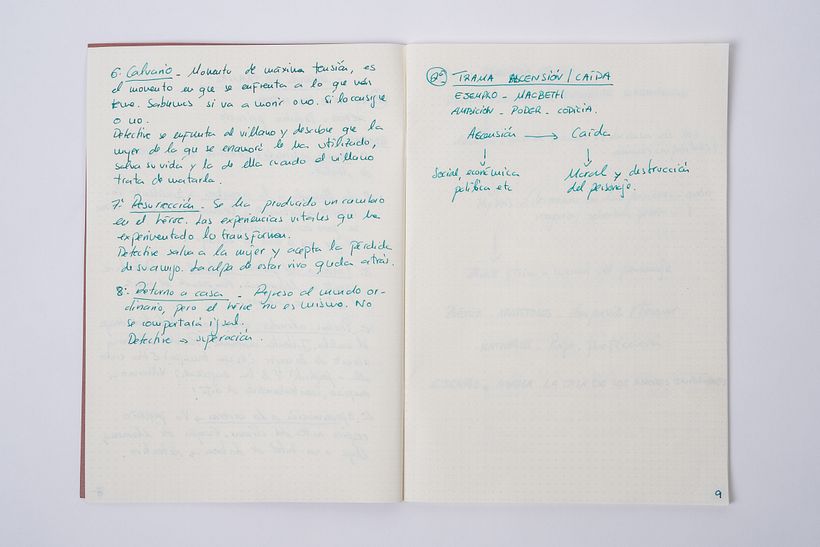 6: Calvario - Momento de máxima tensión, es
el momento en que se enfrenta a lo que más
teme. Sabemos si va a morir o no. Si lo consigue
o no.
Detective se enfrenta al villano y descubre que la
mujer de la que se enamoró le ha utilizado,
salva su vida y la de ella cuando el villano
trata de matarla.
7: Resurrección - Se ha producido un cambio
en el héroe. Las experiencias vitales que ha
experimentado lo transforman.
Detective salva a la mujer y acepta la pérdida
de su amigo. La culpa de estar vivo queda atrás.
8: Retorno a casa - Regreso al mundo or-
dinario, pero el héroe no es mismo. No
se comportará igual.
Detective → superación.
TRAMA ASCENSIÓN / CAÍDA
EJEMPLO - MACBETH
AMBICIÓN - PODER - CODICIA.
Ascensión → Caída
↓ ↓
Social, económica Moral y destrucción
política etc del personaje.
9